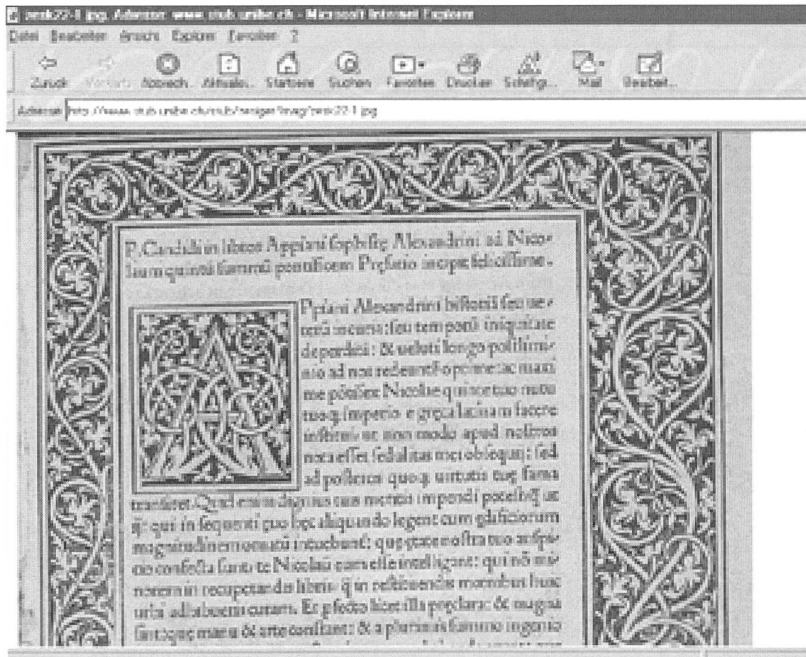 zesk22-1.jpg. Adresse: www.stub.unibe.ch - Microsoft Internet Explorer
Datei Bearbeiten Ansicht Explorer Favoriten ?
Zurück Vorwärts Abbrech... Aktualis... Startseite Suchen Favoriten Drucken Schriftgr... Mail Bearbeit...
Adresse http://www.stub.unibe.ch/stub/
P. Candidi in libros Appiani sophistę Alexandrini ad Nico-
laum quintū summū pontificem Pręfatio incipit felicissime.
Ppiani Alexandrini historiā seu ue-
terū incuria: seu temporū iniquitate
deperditā: & ueluti longo postlimi-
nio ad nos redeuntē
me pōtifex Nicolae quinte tuo nutu
tuoq; imperio e gręca latinam facere
institui: ut non modo apud nostros
nota esset sedulitas mei obsequii: sed
ad posteros quoq; uirtutis tuę fama
transiret. Quid enim dignius tuis meritis impendi
qui in sequenti ęuo hęc aliquando legent cum ędificiorum
magnitudinem ornatū intuebunt: quę ętate nostra tuo auspi-
cio confecta sunt: te Nicolaū eum esse intelligant: qui nō mi-
norem in recuperandis libris: q̄ in restituendis moenibus huic
urbi adhibueris curam. Et illa pręclara: & magna
manu & arte constant: & a plurimis summo ingenio